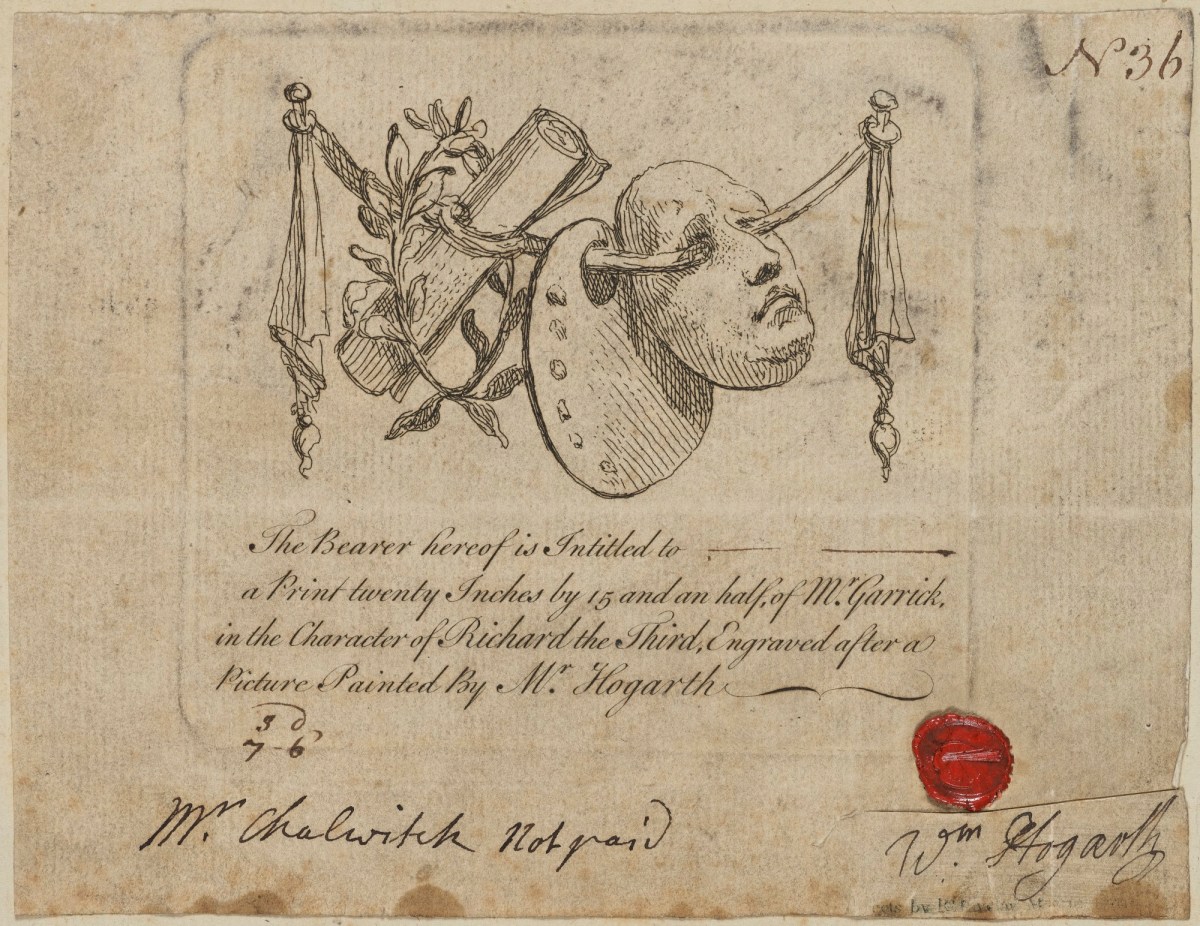 N 36
The Bearer hereof is Intitled to
a Print twenty Inches by 15 and an half, of Mr. Garrick,
in the Character of Richard the Third, Engraved after a
Picture Painted By Mr. Hogarth
7 6
Mr. Chalwitch Not paid
Wm. Hogarth
by